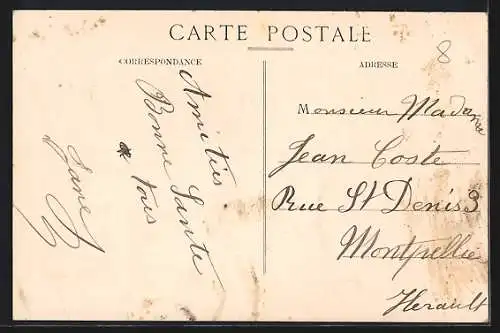 CARTE POSTALE
CORRESPONDANCE
ADRESSE
8
Amitiés
Bonne Sante
a tous
Jane
Monsieur Madame
Jean Coste
Rue St Denis 3
Montpellier
Herault